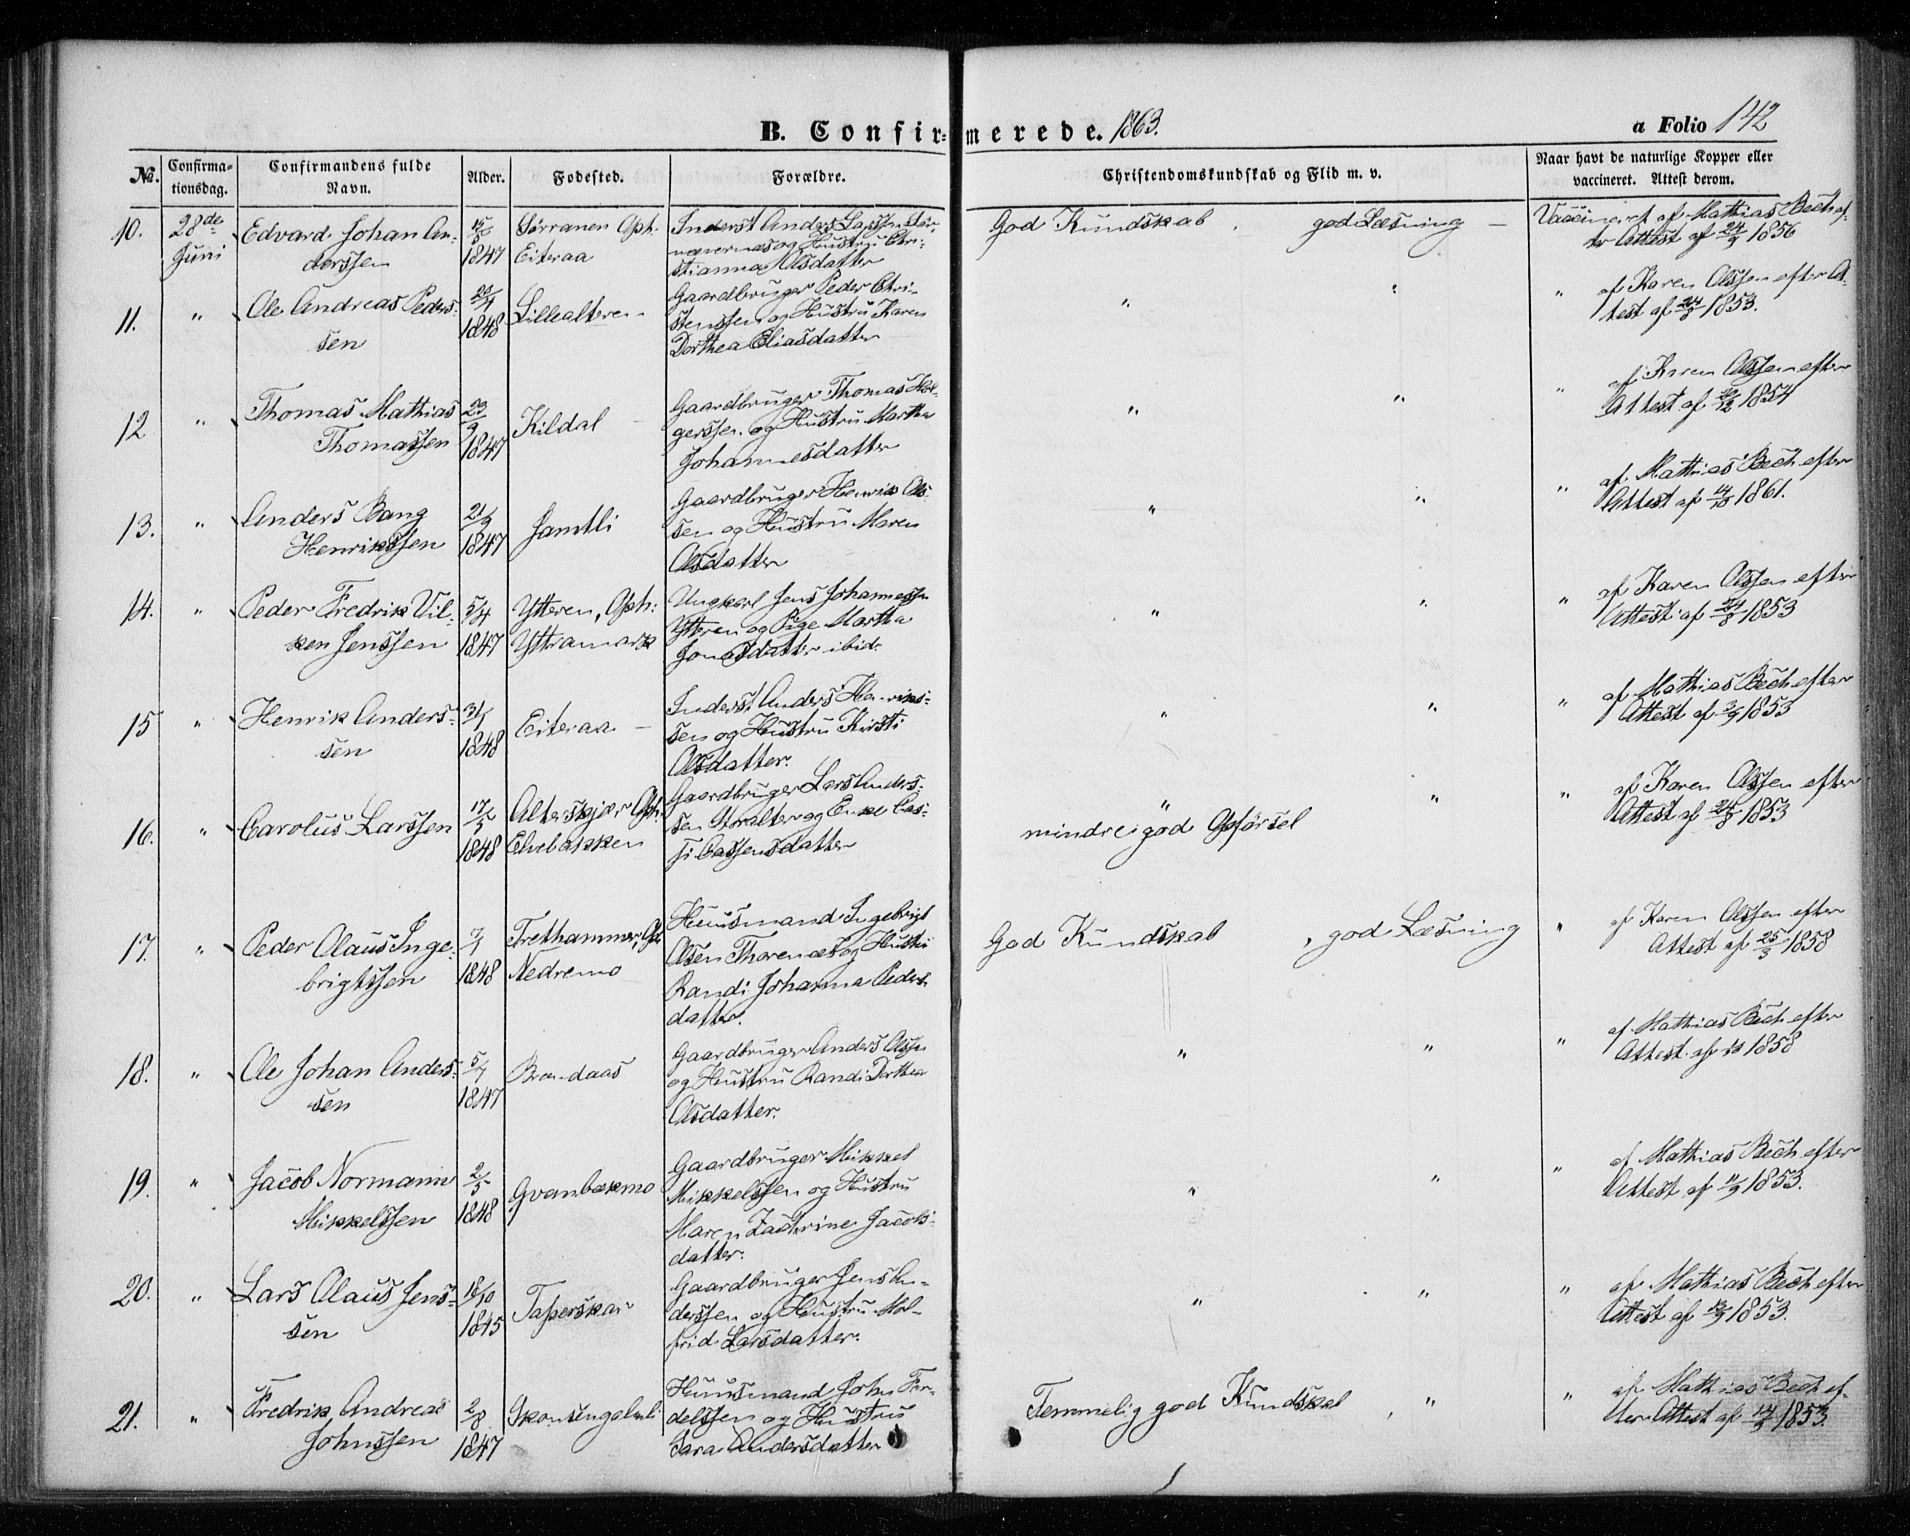 B. Confirmerede. 1863. a Folio 142
No. Confirmationsdag. Confirmandens fulde Navn. Alder. Fødested. Forældre. Christendomskundskab og Flid m. v. Naar havt de naturlige Kopper eller vaccineret. Attest derom.
10. 28de Juni
Edvard Johan An-
derssen
1847
Sørranen Oph.
Eiteraa
Inderst Anders Larssen
og Hustru Chri-
stianna Olsdatter
God Kundskab, god Læsning –
Vaccineret af Mathias Bech ef-
ter Attest af 24/9 1856
11. "
Ole Andreas Peders-
sen
1848
Lillealteren –
Gaardbruger Peder Chri-
stenssen og Hustru Karen
Dorthea Eliasdatter
" "
" af Karen Olssen efter At-
test af 24/8 1853.
12 "
Thomas Mathias
Thomassen
23/9 1847
Kildal –
Gaardbruger Thomas Hol-
gerssen og Hustru Martha
Johannesdatter
" "
" af Karen Olssen efter
Attest af 1854
13. "
Anders Bang
Henrikssen
21/9 1847
Jamtli
Gaardbruger Henrik Ols-
sen og Hustru Maren
Olsdatter
" "
" af Mathias Bech efter
Attest af 14/10 1861.
14. "
Peder Fredrik Vil-
ken Jenssen
5/4 1847
Ytteren, Oph:
Yttramark
Ungkarl Jens Johannessen
Ytteren og Pige Martha
Jonasdatter ibid:
" "
" af Karen Olssen efter
Attest af 24/8 1853
15 "
Henrik Anders-
sen
31/1 1848
Eiteraa –
Inderst Anders Henriks-
sen og Hustru Kirsti
Olsdatter.
" "
" af Mathias Bech efter
Attest af 3/9 1853
16. "
Carolus Larssen
17/5 1848
Alterskjær Oph.
Elvebakken
Gaardbruger Lars Anders-
sen Storalter og Enke
" "
mindre god Opførsel
" af Karen Olssen efter
Attest af 24/8 1853
17. "
Peder Olaus Inge-
brigtssen
3/1 1848
Trethammer, Oph
Nedremo
Huusmand Ingebrigt
Olsen Thorenæs og Hustru
Randi Johanna Peders-
datter.
God Kundskab, god Læsning
" af Karen Olssen efter
Attest af 25/3 1858
18. "
Ole Johan Anders-
sen
5/7 1847
Brandaas
Gaardbruger Anders Olssen
og Hustru Randi Dorthea
Olsdatter.
" "
" af Mathias Bech efter
Attest af 1858
19. "
Jacob Normann
Mikkelssen
2/5 1848
Qvanbækmo
Gaardbruger Mikkel
Mikkelssen og Hustru
Maren Zachrine Jacobs-
datter.
" "
" af Mathias Bech efter
Attest af 11/9 1853.
20. "
Lars Olaus Jens-
sen
18/10 1845
Tapperskar
Gaardbruger Jens An-
derssen og Hustru Mol-
frid Larsdatter.
" "
" af Mathias Bech efter
Attest af 1853.
21. "
Fredrik Andreas
Johnssen
2/8 1847
Skonsengalmli
Huusmand John
og Hustru
Sara Andersdatter
Temmelig god Kundskab, "
" af Mathias Bech ef-
ter Attest af 14/9 1853